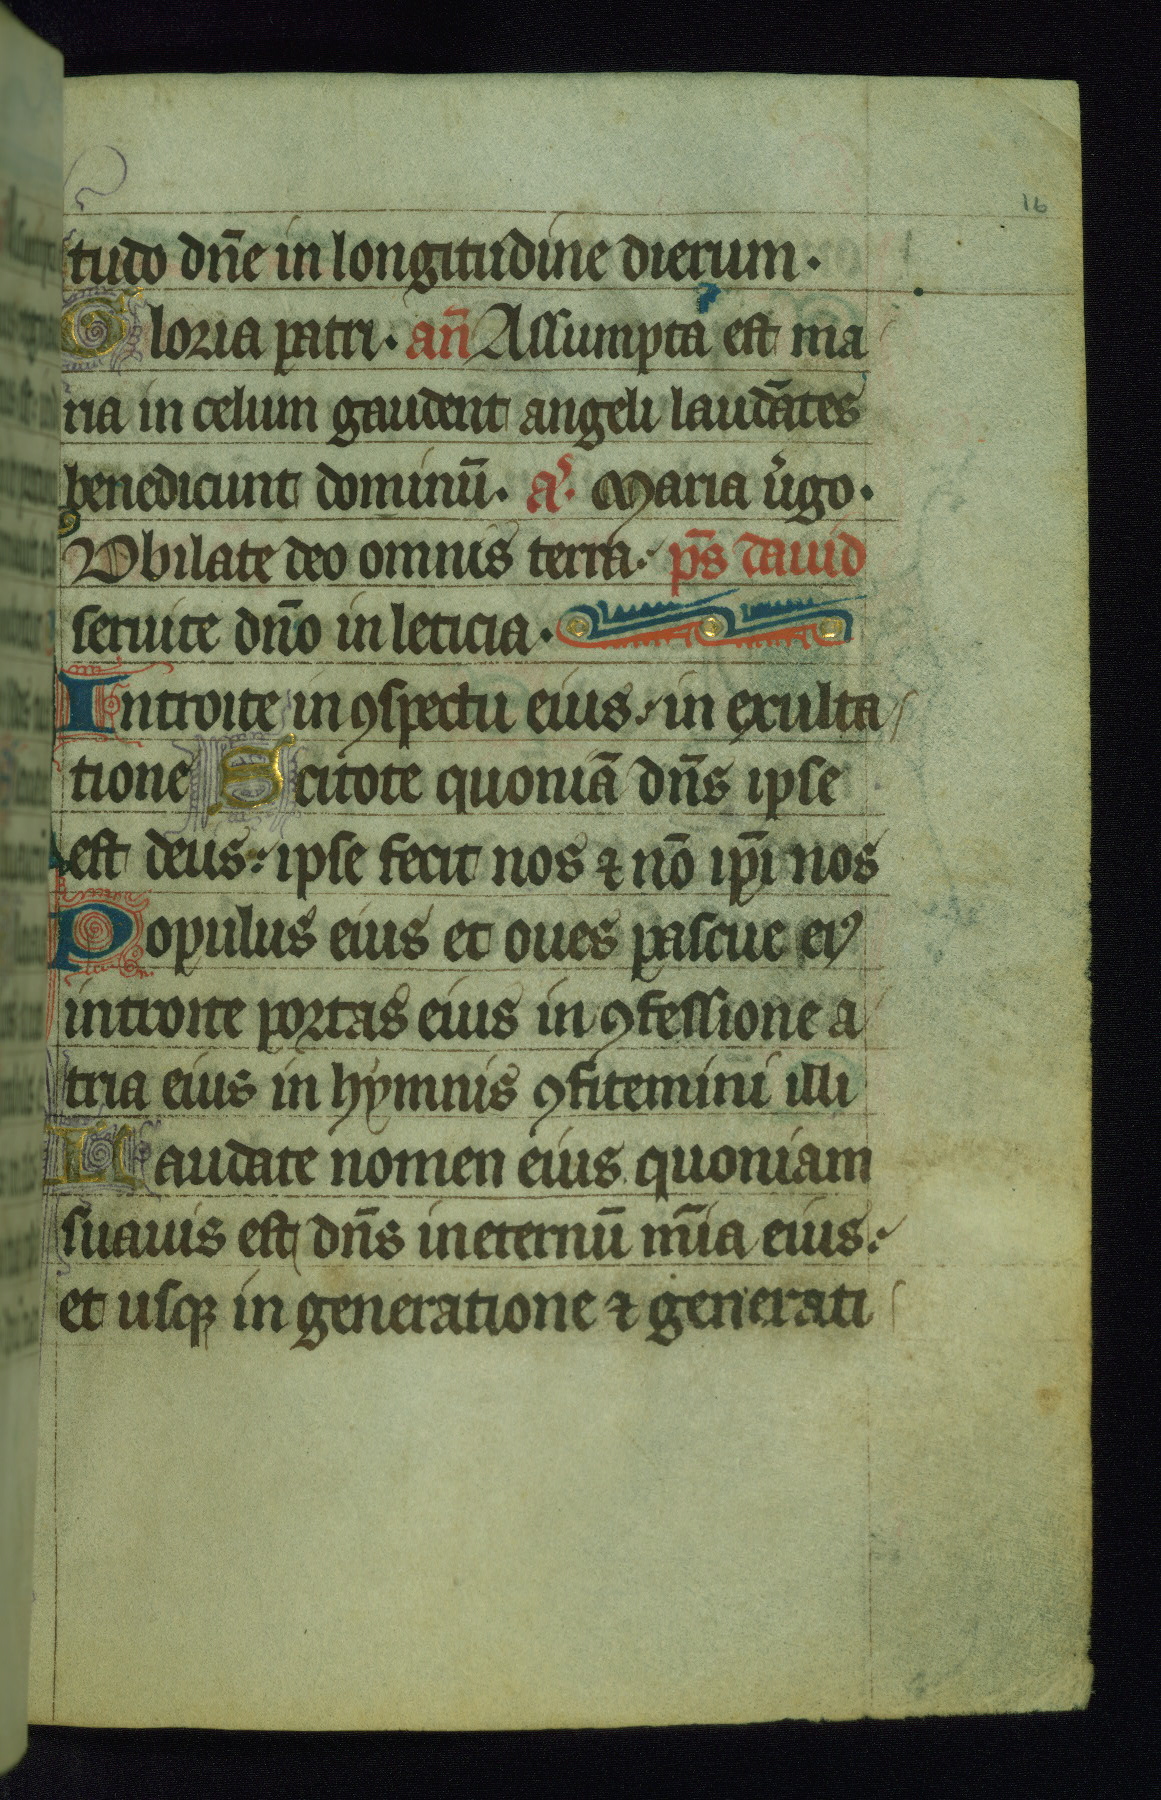 16
tudo dn̄e in longitudine dierum.
Gloria patri. an̄ Assumpta est ma
ria in celum gaudent angeli laudātes
benedicunt dominū. a. Maria v̓go.
Iubilate deo omnis terra: ps̄ dauid
seruite dn̄o in leticia.
Introite in ꝯspectu eius: in exulta
tione Scitote quoniā dn̄s ipse
est deus: ipse fecit nos ⁊ nō ip̄i nos
Populus eius et oues pascue eiꝰ
introite portas eius in ꝯfessione a
tria eius in hymnis ꝯfitemini illi
Laudate nomen eius quoniam
suauis est dn̄s in eternū mīa eius:
et usqꝫ in generatione ⁊ generati